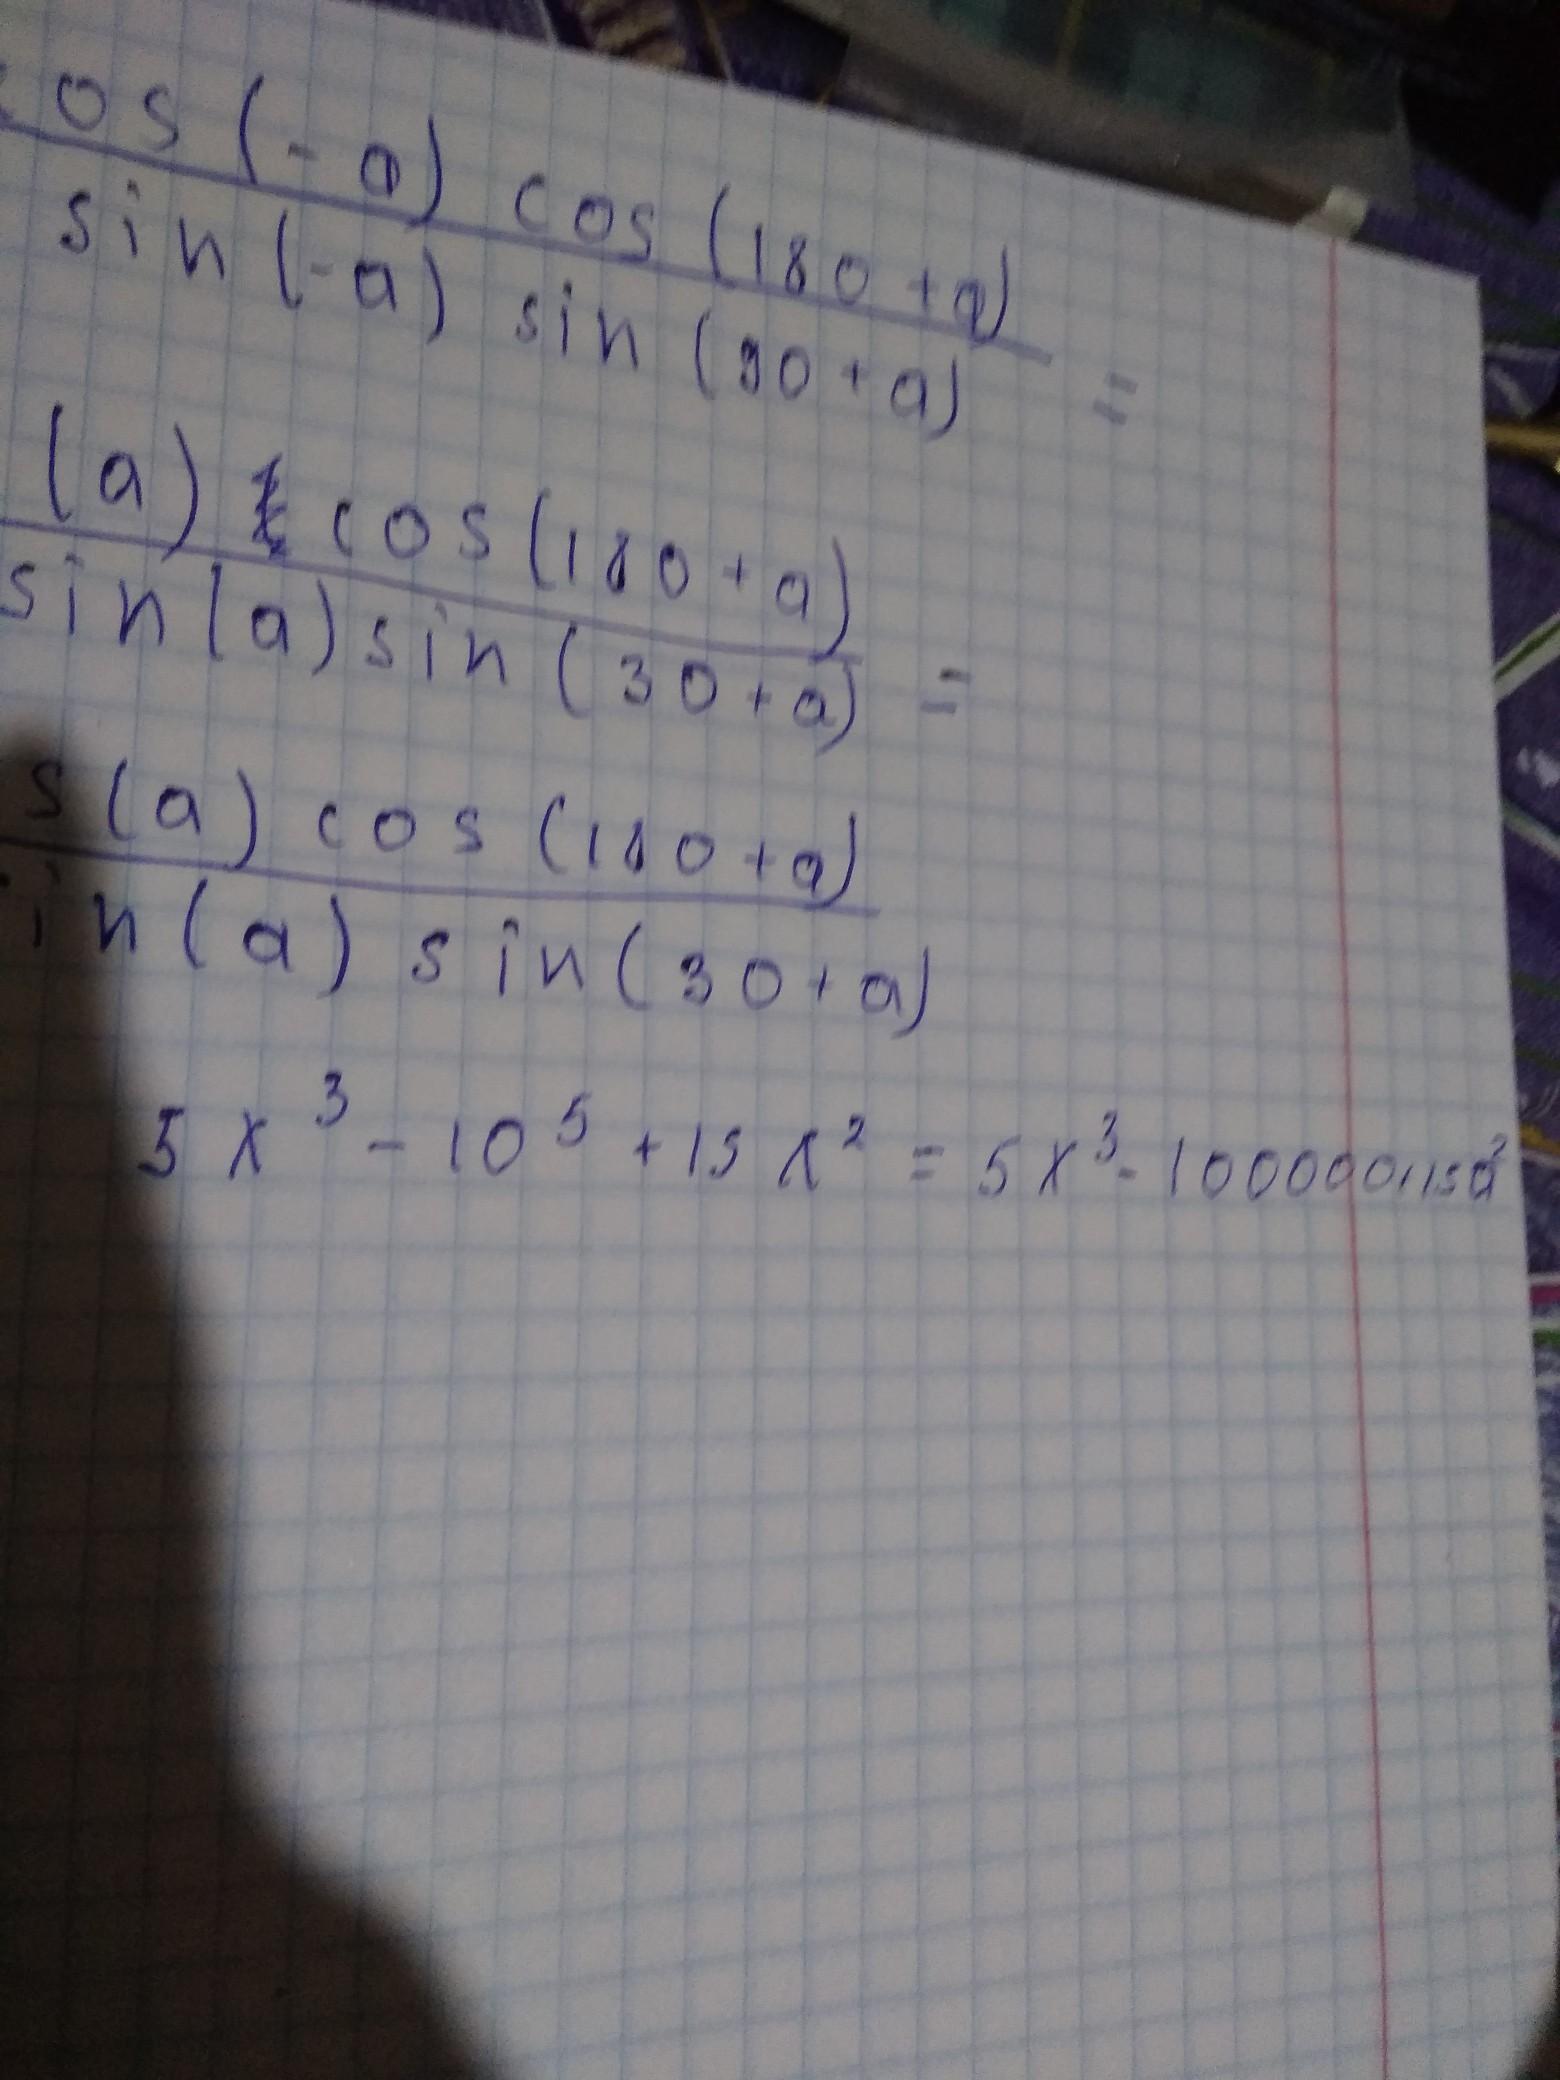 cos (-a) cos (180 + a)
sin (-a) sin (90 + a) =
(a) cos (180 + a)
sin (a) sin (30 + a) =
s (a) cos (180 + a)
in (a) sin (30 + a)
5x³ - 10⁵ + 15x² = 5x³ - 100000